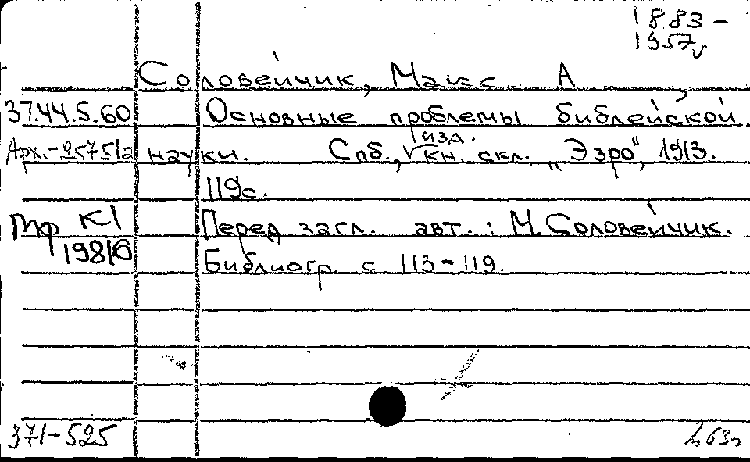 1883-
1957
Соловейчик, Макс А
37.44.5.60 Основные проблемы библейской
Арх.-2575/а науки. Спб., изд. кн. скл. "Эзро", 1913.
119с.
Мф К1 Перед загл. авт.: М. Соловейчик.
198/6 Библиогр. с 113-119.
371-525